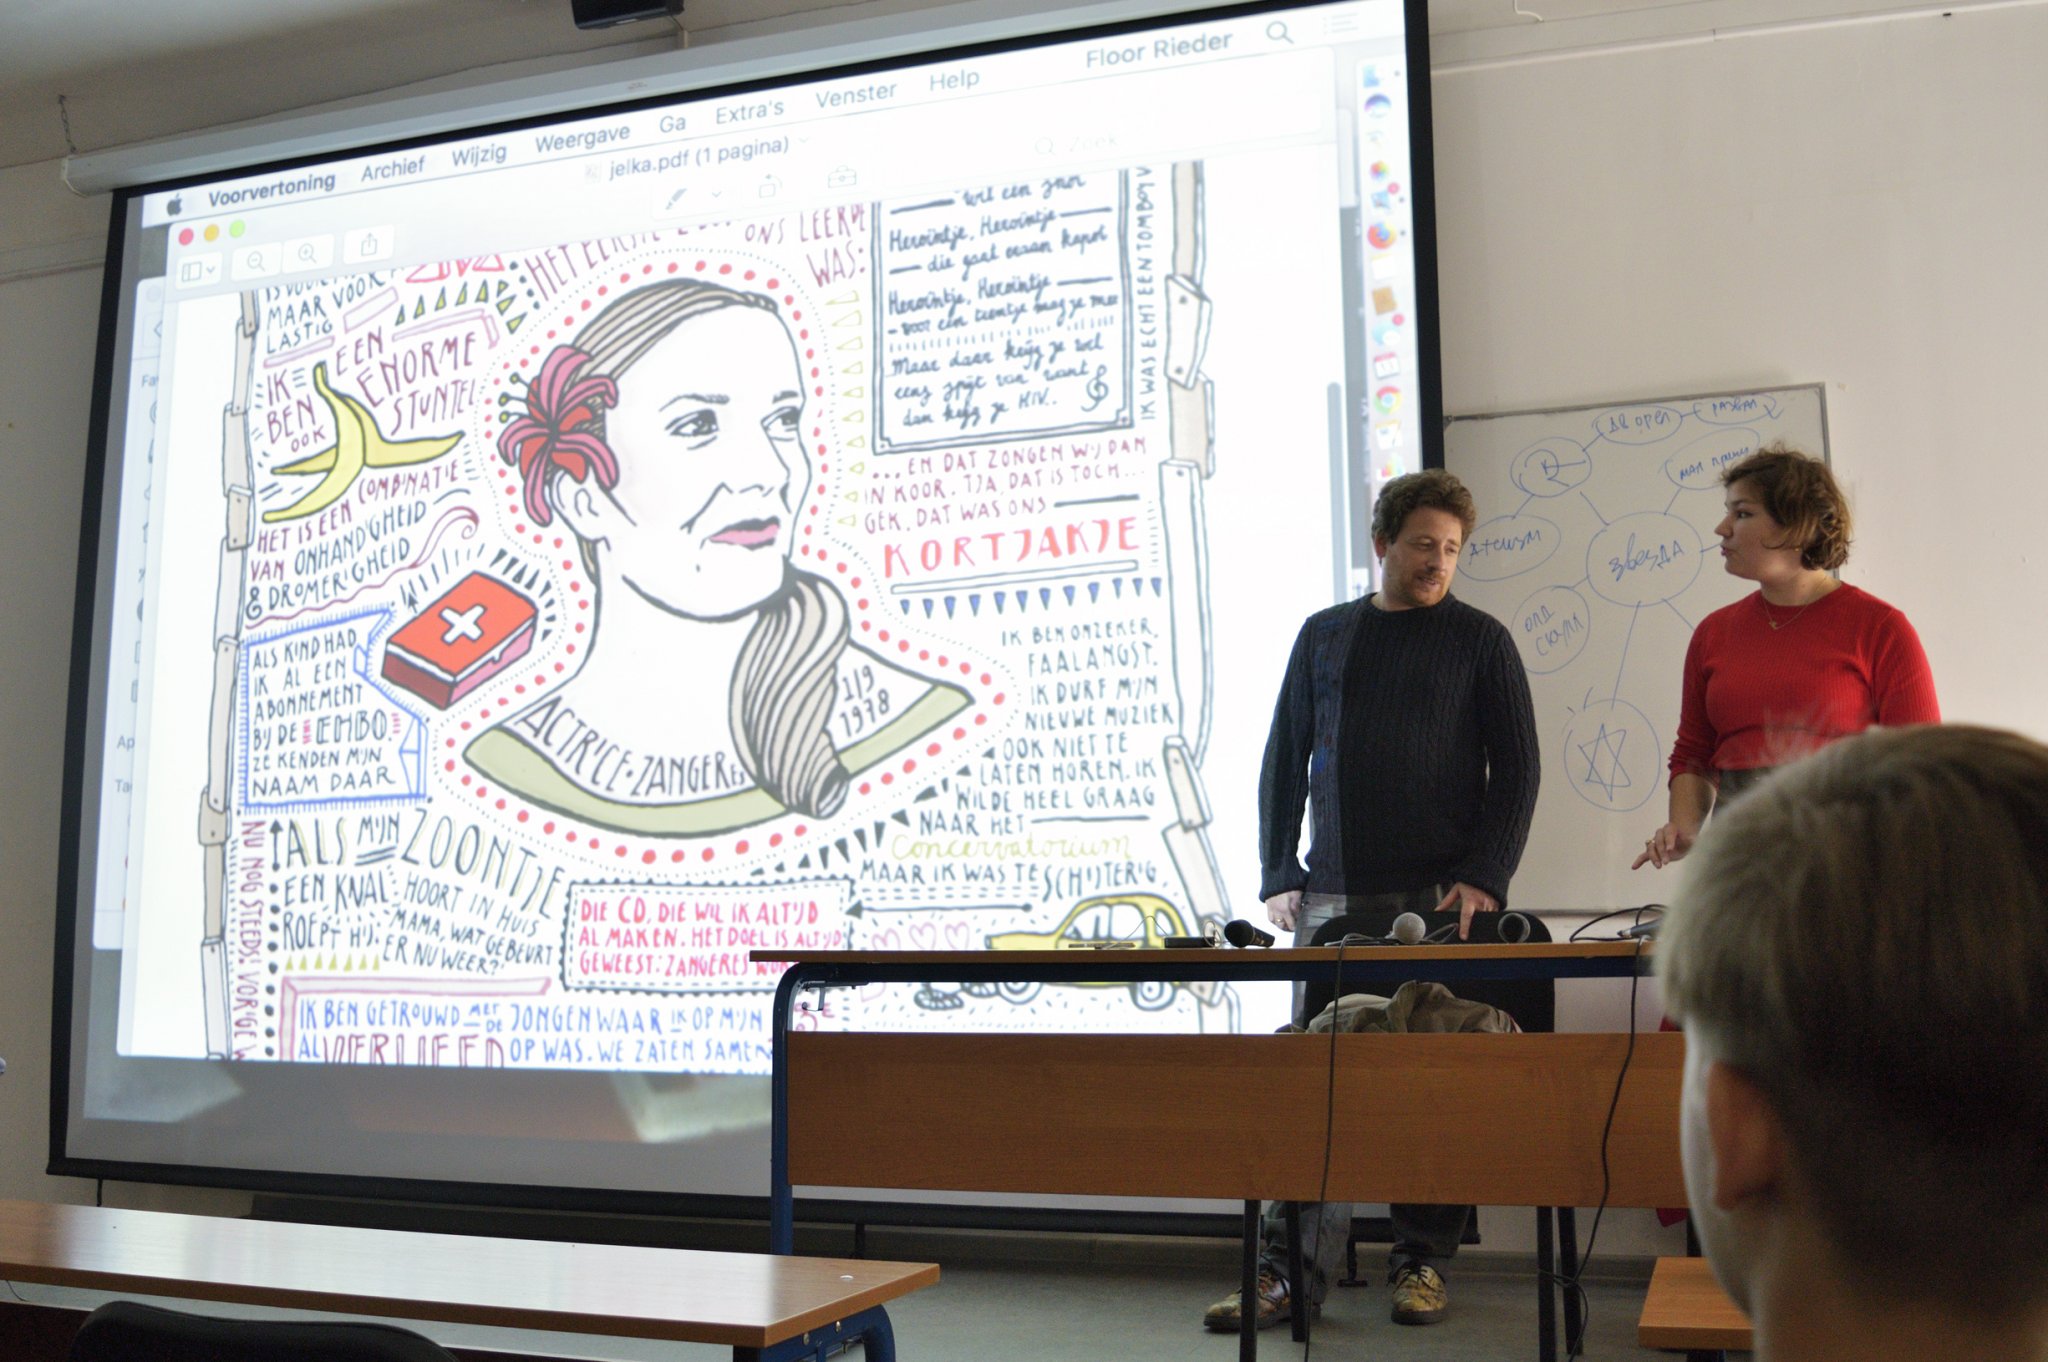 Voorvertoning Archief Wijzig Weergave Ga Extra's Venster Help Floor Rieder
jelka.pdf (1 pagina)
Zoek
MAAR VOOR
LASTIG
IK
BEN
OOK
EEN
ENORME
STUNTEL
HET IS EEN COMBINATIE
VAN ONHANDIGHEID
& DROMERIGHEID
ALS KIND HAD
IK AL EEN
ABONNEMENT
BIJ DE EHBO.
ZE KENDEN MIJN
NAAM DAAR
NU NOG STEEDS! VORIGE
ALS MIJN ZOONTJE
EEN KNAL HOORT IN HUIS
ROEPT HIJ: MAMA, WAT GEBEURT
ER NU WEER?'
IK BEN GETROUWD MET DE JONGEN WAAR IK OP MIJN
AL VERLIEFD OP WAS. WE ZATEN SAMEN
HET EERSTE
ONS LEERDE
WAS:
ACTRICE • ZANGERES
1/9
1978
DIE CD, DIE WIL IK ALTIJD
AL MAKEN. HET DOEL IS ALTIJD
GEWEEST: ZANGERES
wil een snor
Heroïntje, Heroïntje
die gaat eraan kapot
Heroïntje, Heroïntje
voor een tientje mag je mee
Maar daar krijg je wel
eens spijt van want
dan krijg je HIV..
IK WAS ECHT EEN TOMBOY
... EN DAT ZONGEN WIJ DAN
IN KOOR. TJA, DAT IS TOCH...
GEK. DAT WAS ONS
KORTJAKJE
IK BEN ONZEKER,
FAALANGST.
IK DURF MIJN
NIEUWE MUZIEK
OOK NIET TE
LATEN HOREN. IK
WILDE HEEL GRAAG
NAAR HET
Concervatorium
MAAR IK WAS TE SCHIJTERIG.
ДВ ОРЕЛ
РАЗВАЛ
АТЕИЗМ
ЗВЕЗДА
ОЛД
СКУЛЛ